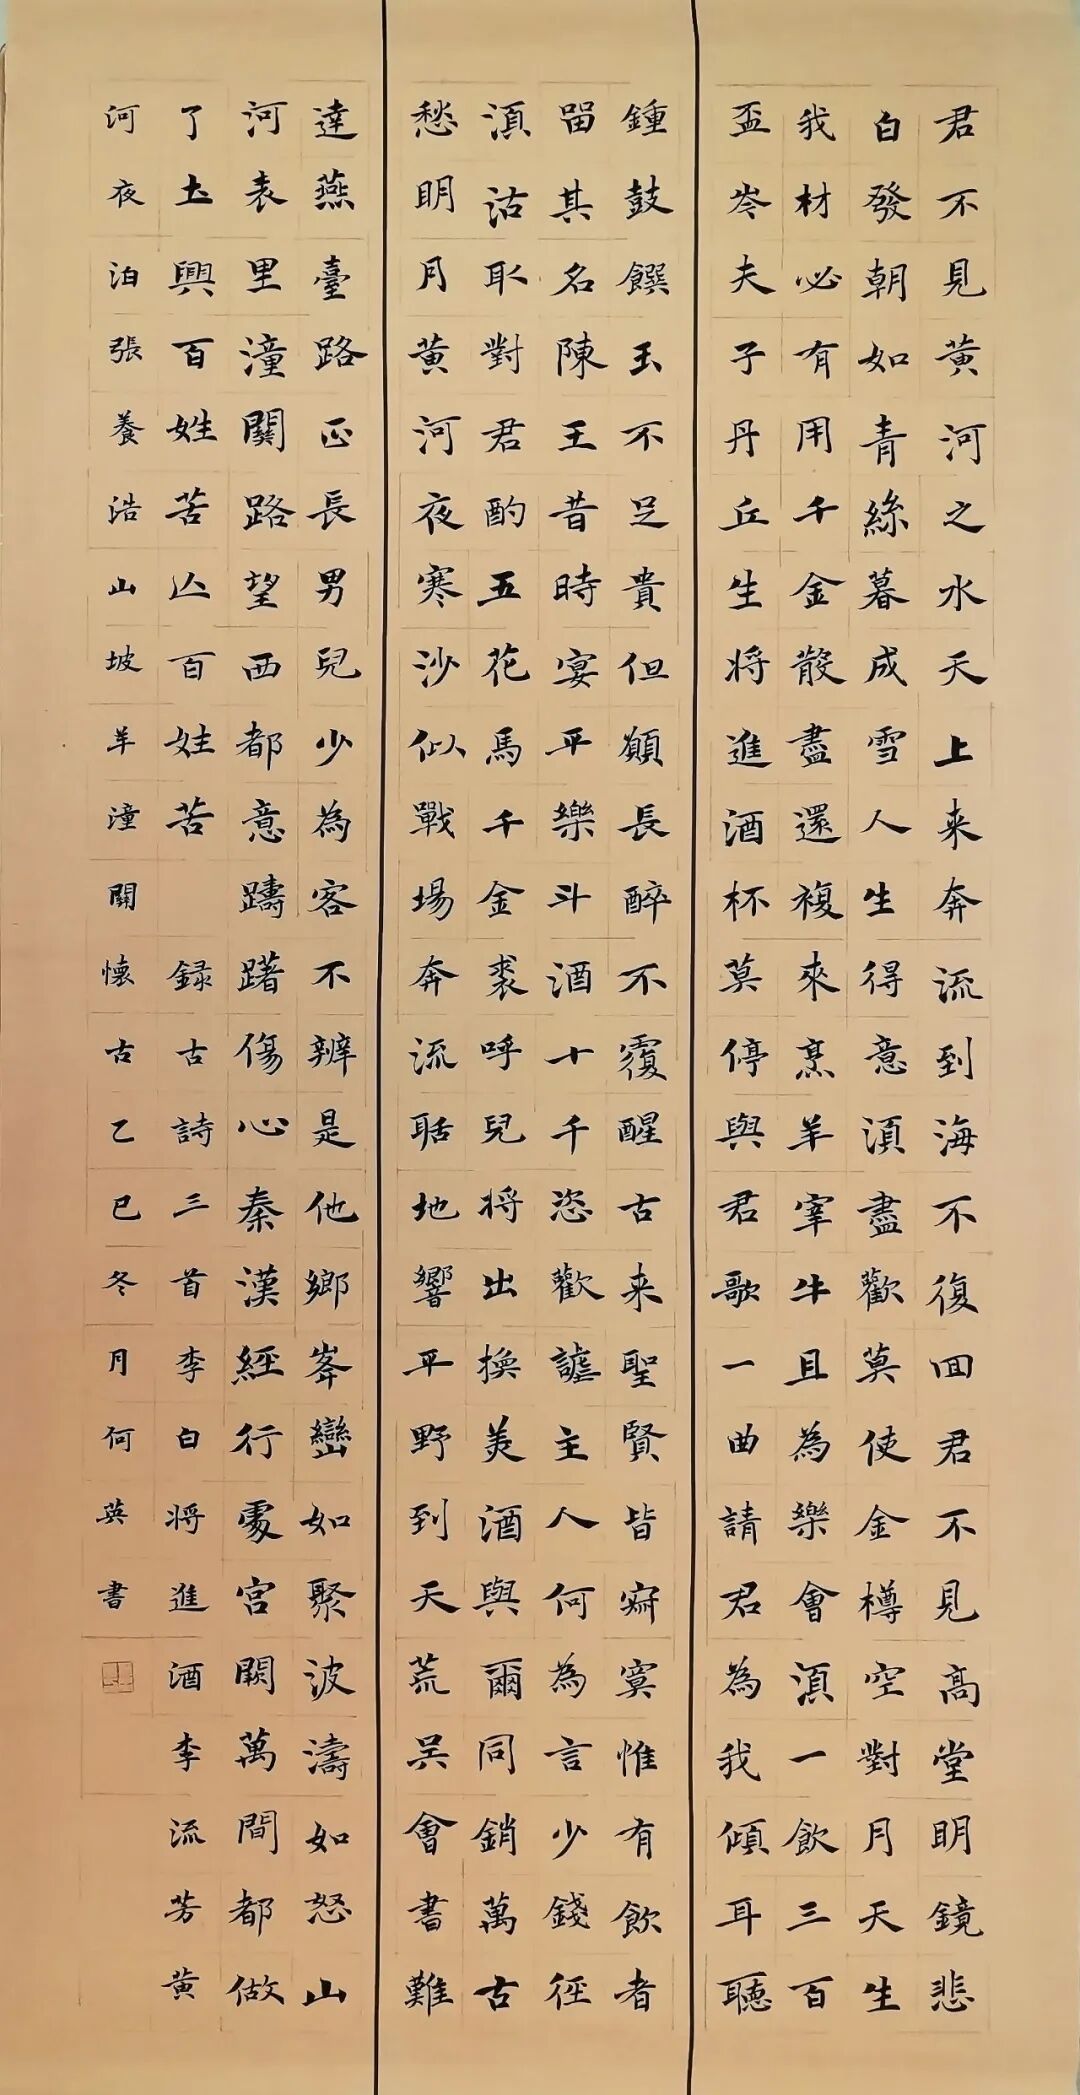 君不見黃河之水天上来奔流到海不復回君不見高堂明鏡悲
白發朝如青絲暮成雪人生得意須盡歡莫使金樽空對月天生
我材必有用千金散盡還複來烹羊宰牛且為樂會須一飲三百
盃岑夫子丹丘生将進酒杯莫停與君歌一曲請君為我傾耳聽
鍾鼓饌玉不足貴但願長醉不覆醒古来聖賢皆寂寞惟有飲者
留其名陳王昔時宴平樂斗酒十千恣歡謔主人何為言少錢徑
須沽取對君酌五花馬千金裘呼兒将出換美酒與爾同銷萬古
愁明月黃河夜寒沙似戰場奔流聒地響平野到天荒吳會書難
達燕臺路正長男兒少為客不辨是他鄉峯巒如聚波濤如怒山
河表里潼關路望西都意躊躇傷心秦漢經行處宮闕萬間都做
了土興百姓苦亡百姓苦 録古詩三首李白将進酒李流芳黃
河夜泊張養浩山坡羊潼關懷古乙巳冬月何英書